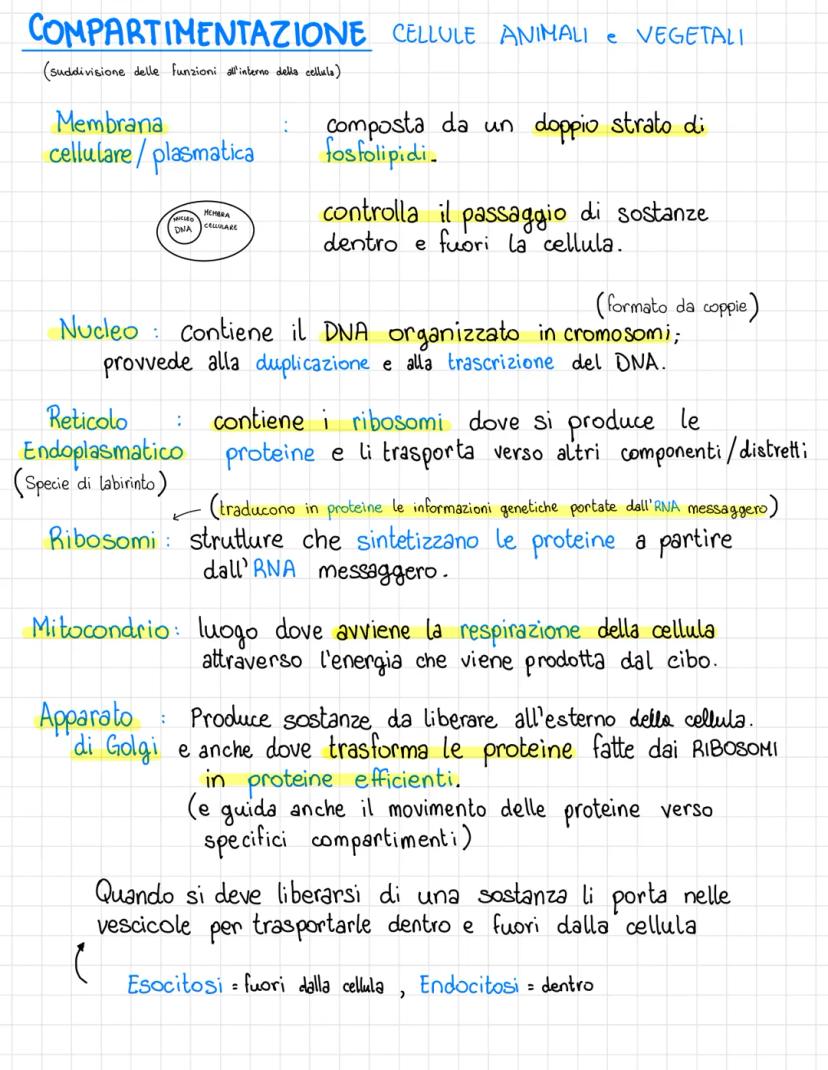 COMPARTIMENTAZIONE CELLULE ANIMALI e VEGETALI
(suddivisione delle funzioni all'interno della cellula)
Membrana : composta da un doppio strato di
cellulare / plasmatica fosfolipidi.
NUCLEO DNA MEMBRA CELLULARE
controlla il passaggio di sostanze
dentro e fuori la cellula.
(formato da coppie)
Nucleo : contiene il DNA organizzato in cromosomi;
provvede alla duplicazione e alla trascrizione del DNA.
Reticolo : contiene i ribosomi dove si produce le
Endoplasmatico proteine e li trasporta verso altri componenti / distretti
(Specie di labirinto)
(traducono in proteine le informazioni genetiche portate dall'RNA messaggero)
Ribosomi : strutture che sintetizzano le proteine a partire
dall'RNA messaggero.
Mitocondrio : luogo dove avviene la respirazione della cellula
attraverso l'energia che viene prodotta dal cibo.
Apparato : Produce sostanze da liberare all'esterno della cellula.
di Golgi e anche dove trasforma le proteine fatte dai RIBOSOMI
in proteine efficienti.
(e guida anche il movimento delle proteine verso
specifici compartimenti)
Quando si deve liberarsi di una sostanza li porta nelle
vescicole per trasportarle dentro e fuori dalla cellula
Esocitosi = fuori dalla cellula , Endocitosi = dentro